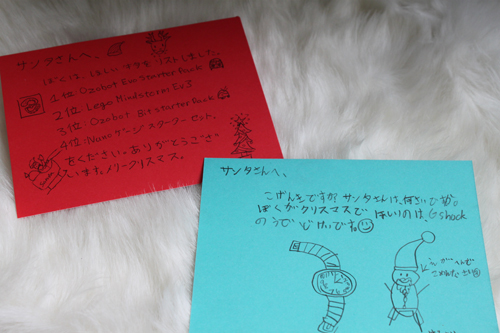 サンタさんへ、
ぼくは、ほしい
リストしました。
1位 Ozobot Evo Starter Pack
2位 Lego Mindstorms Ev3
3位 Ozobot Bit starter Pack
4位 スターターセット、
をください。ありがとうござ
います。メリークリスマス。
サンタさんへ、
こげんきですか サンタさんは、
ぼくがクリスマスで ほしいのは、G shock
のうでどけいです。